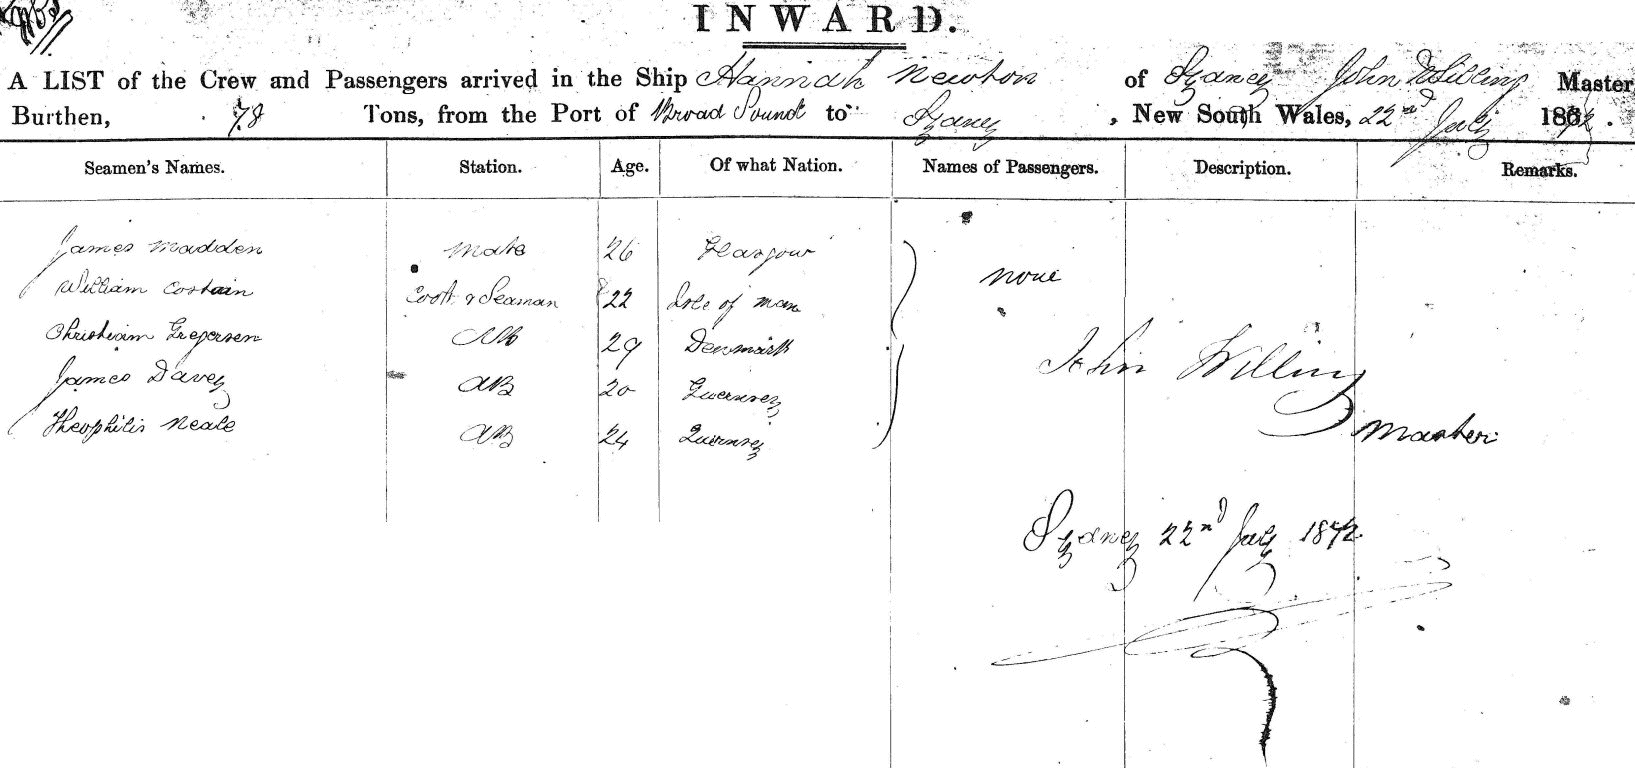 INWARD.
A LIST of the Crew and Passengers arrived in the Ship Hannah Newton of Sydney John Willing Master
Burthen, 78 Tons, from the Port of Broad Sound to Sydney, New South Wales, 22nd July 1872.
Seamen's Names. Station. Age. Of what Nation. Names of Passengers. Description. Remarks.
James Madden Mate 26 Glasgow
none
William Costain Cook & Seaman 22 Isle of man
Christian Gregersen AB 29 Denmark
John Willing
James Davey AB 20 Guernsey
Theophilis Neale AB 24 Guernsey
Master
Sydney 22nd July 1872